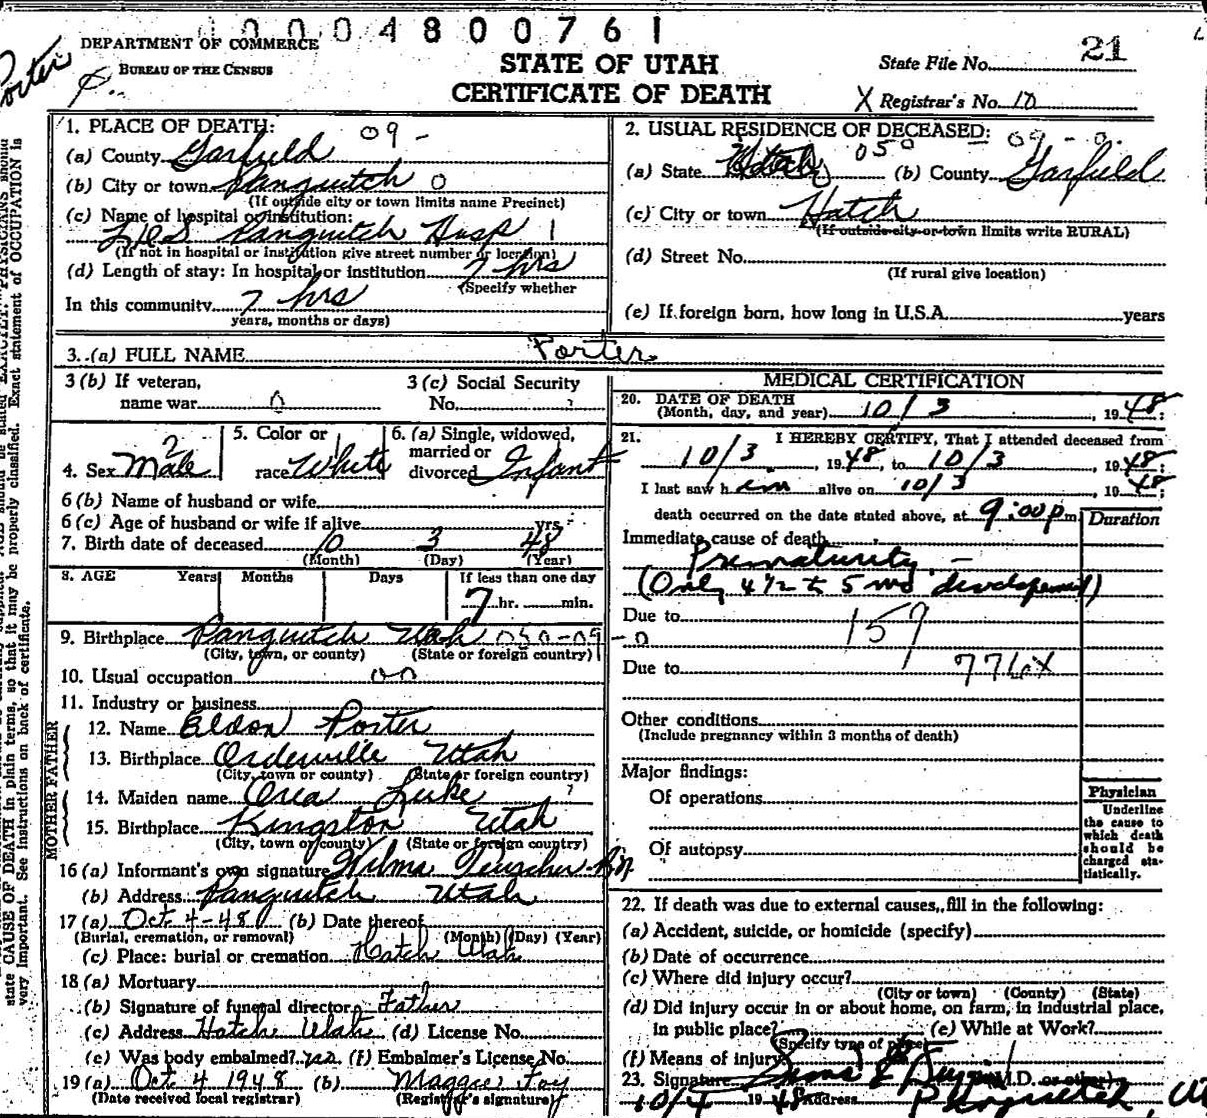 0004800761
Porter
DEPARTMENT OF COMMERCE
BUREAU OF THE CENSUS
STATE OF UTAH
CERTIFICATE OF DEATH
State File No. 21
X Registrar's No. 10
1. PLACE OF DEATH: 09 -
(a) County Garfield
(b) City or town Panguitch 0
(If outside city or town limits name Precinct)
(c) Name of hospital or institution:
LDS Panguitch Hosp 1
(If not in hospital or institution give street number or location)
(d) Length of stay: In hospital or institution 7 hrs
(Specify whether
In this community 7 hrs
years, months or days)
2. USUAL RESIDENCE OF DECEASED: 09 - 0
(a) State Utah 050 (b) County Garfield
(c) City or town Hatch
(If outside city or town limits write RURAL)
(d) Street No.
(If rural give location)
(e) If foreign born, how long in U.S.A. years
3. (a) FULL NAME Porter
3 (b) If veteran,
name war 0
3 (c) Social Security
No.
4. Sex Male 2
5. Color or
race White
6. (a) Single, widowed,
married or
divorced Infant
6 (b) Name of husband or wife
6 (c) Age of husband or wife if alive yrs.
7. Birth date of deceased 10 3 48
(Month) (Day) (Year)
8. AGE Years Months Days If less than one day
7 hr. min.
9. Birthplace Panguitch Utah 050-09-0
(City, town, or county) (State or foreign country)
10. Usual occupation 00
11. Industry or business
FATHER
12. Name Eldon Porter
13. Birthplace Orderville Utah
(City, town or county) (State or foreign country)
MOTHER
14. Maiden name Orea Luke
15. Birthplace Kingston Utah
(City, town or county) (State or foreign country)
16 (a) Informant's own signature Wilma
(b) Address Panguitch Utah
17 (a) Oct 4-48 (b) Date thereof
(Burial, cremation, or removal) (Month) (Day) (Year)
(c) Place: burial or cremation Hatch Utah
18 (a) Mortuary
(b) Signature of funeral director Father
(c) Address Hatch Utah (d) License No.
(e) Was body embalmed? (f) Embalmer's License No.
19 (a) Oct 4 1948 (b) Maggie Foy
(Date received local registrar) (Registrar's signature)
MEDICAL CERTIFICATION
20. DATE OF DEATH
(Month, day, and year) 10/3, 1948;
21. I HEREBY CERTIFY, That I attended deceased from
10/3, 1948, to 10/3, 1948;
I last saw him alive on 10/3, 1948;
death occurred on the date stated above, at 9:00 p m.
Duration
Immediate cause of death
Prematurity -
(Only 4 1/2 to 5 mo development)
Due to 159
Due to 776X
Other conditions
(Include pregnancy within 3 months of death)
Major findings:
Of operations
Of autopsy
Physician
Underline
the cause to
which death
should be
charged sta-
tistically.
22. If death was due to external causes, fill in the following:
(a) Accident, suicide, or homicide (specify)
(b) Date of occurrence
(c) Where did injury occur?
(City or town) (County) (State)
(d) Did injury occur in or about home, on farm, in industrial place,
in public place? (e) While at Work?
(Specify type of place)
(f) Means of injury
23. Signature (M.D. or other)
10/4 1948 Address Panguitch
state CAUSE OF DEATH in plain terms, so that it may be properly classified. Exact statement of OCCUPATION is
very important. See instructions on back of certificate.